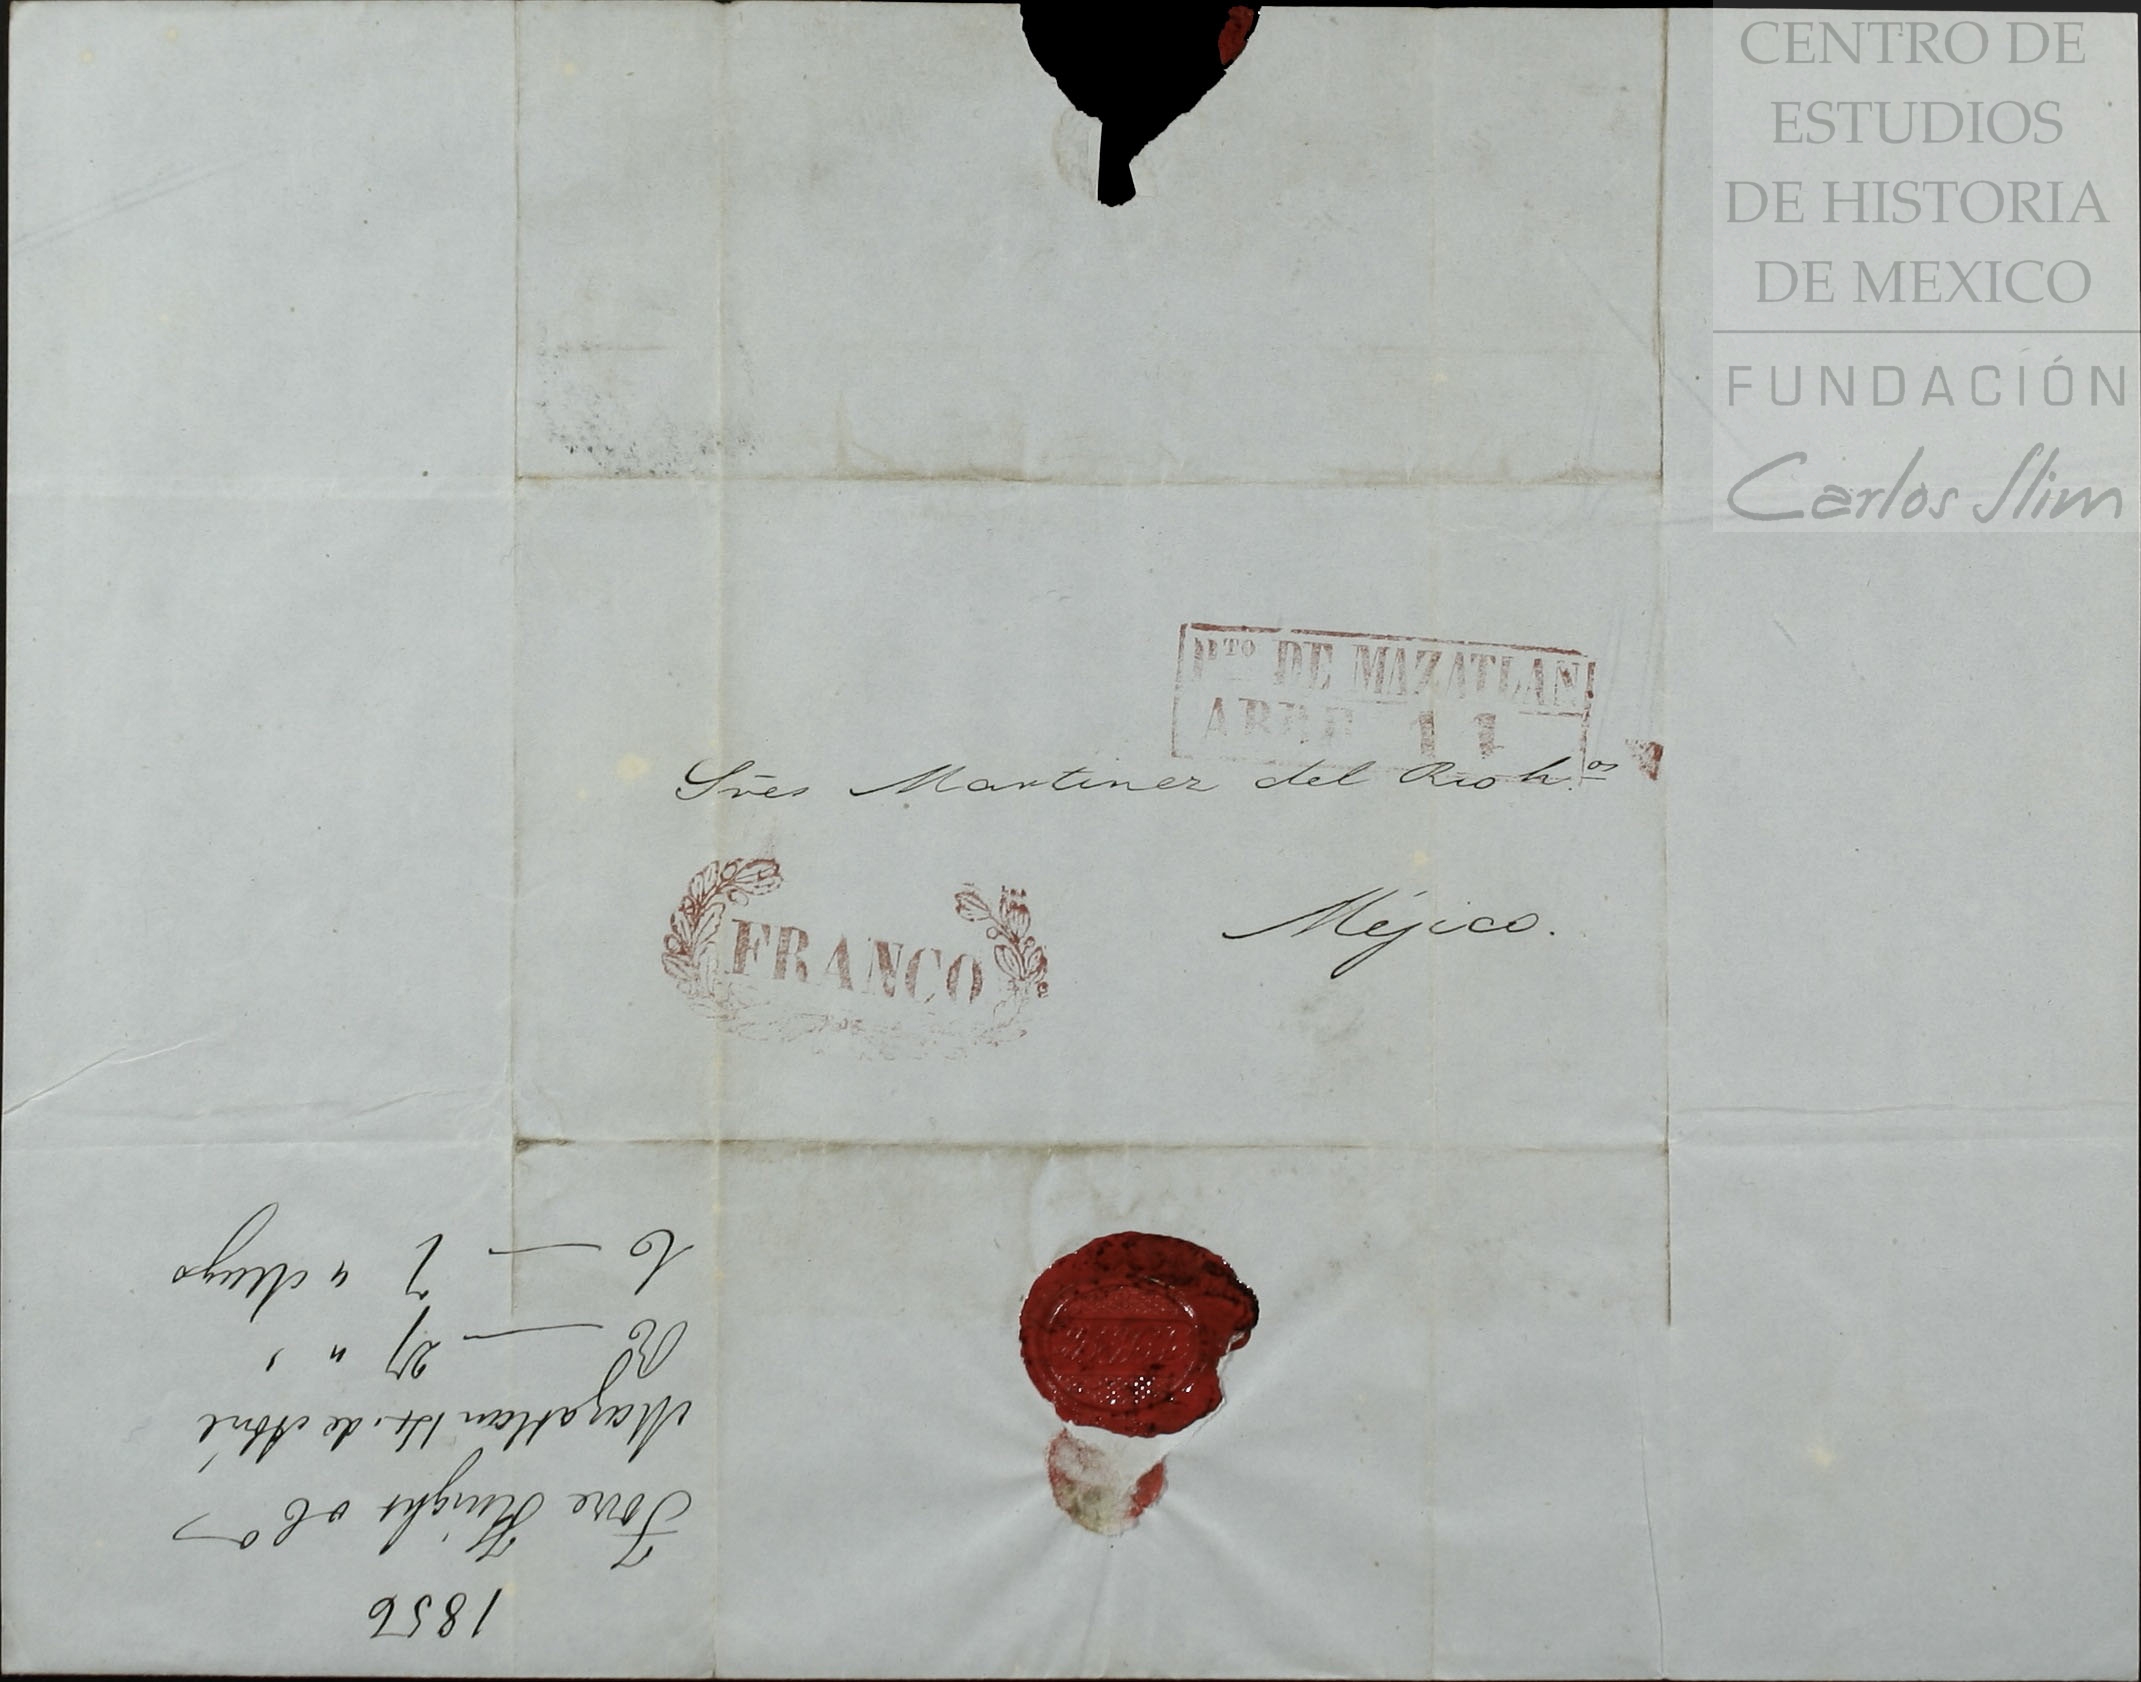 CENTRO DE
ESTUDIOS
DE HISTORIA
DE MEXICO
FUNDACIÓN
Carlos Slim
Pto DE MAZATLAN
ABRE 11
Sres Martinez del Rio hos
Méjico.
FRANCO
1856
Torre Knight & Co
Mazatlan 14. de Abril
Re — 27 " "
C — 7 " Mayo